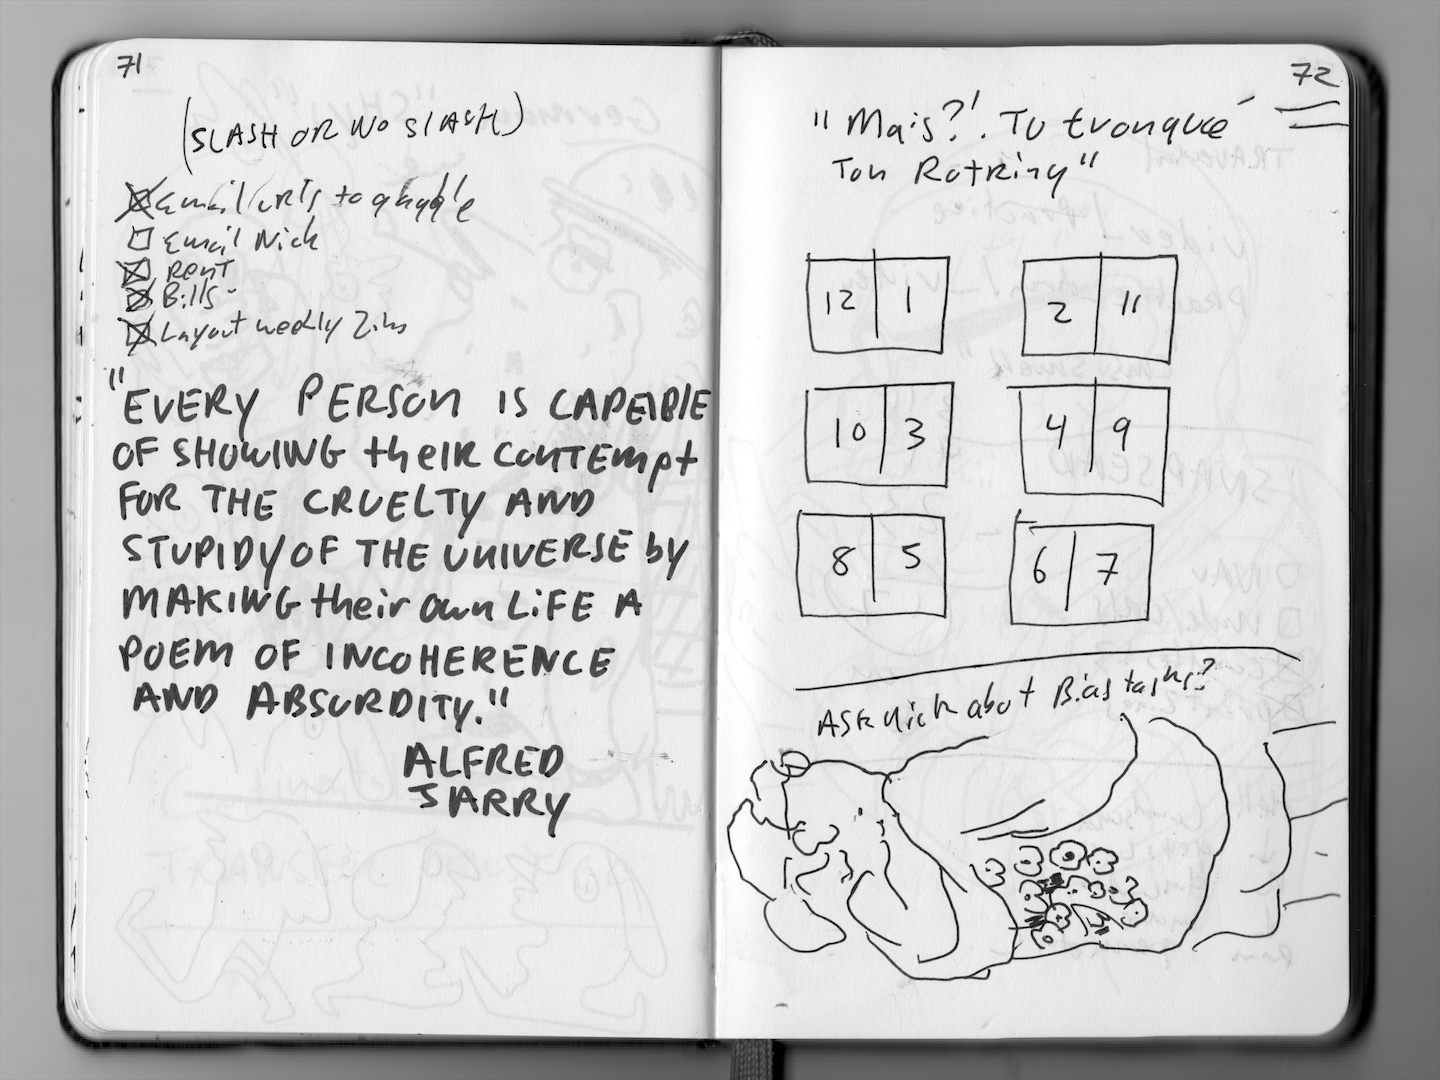 71
(SLASH OR NO SLASH)
Email urls to
Email Nick
Rent
Bills
Layout weekly
"EVERY PERSON IS CAPEIBLE
OF SHOWING their CONTEMPT
FOR THE CRUELTY AND
STUPIDY OF THE UNIVERSE by
MAKING their own LiFE A
POEM OF INCOHERENCE
AND ABSURDITY."
ALFRED
JARRY
72
"Mais?! Tu tronqué
Ton Rotring"
12 1 2 11
10 3 4 9
8 5 6 7
ASK Nick about Bias tasks?